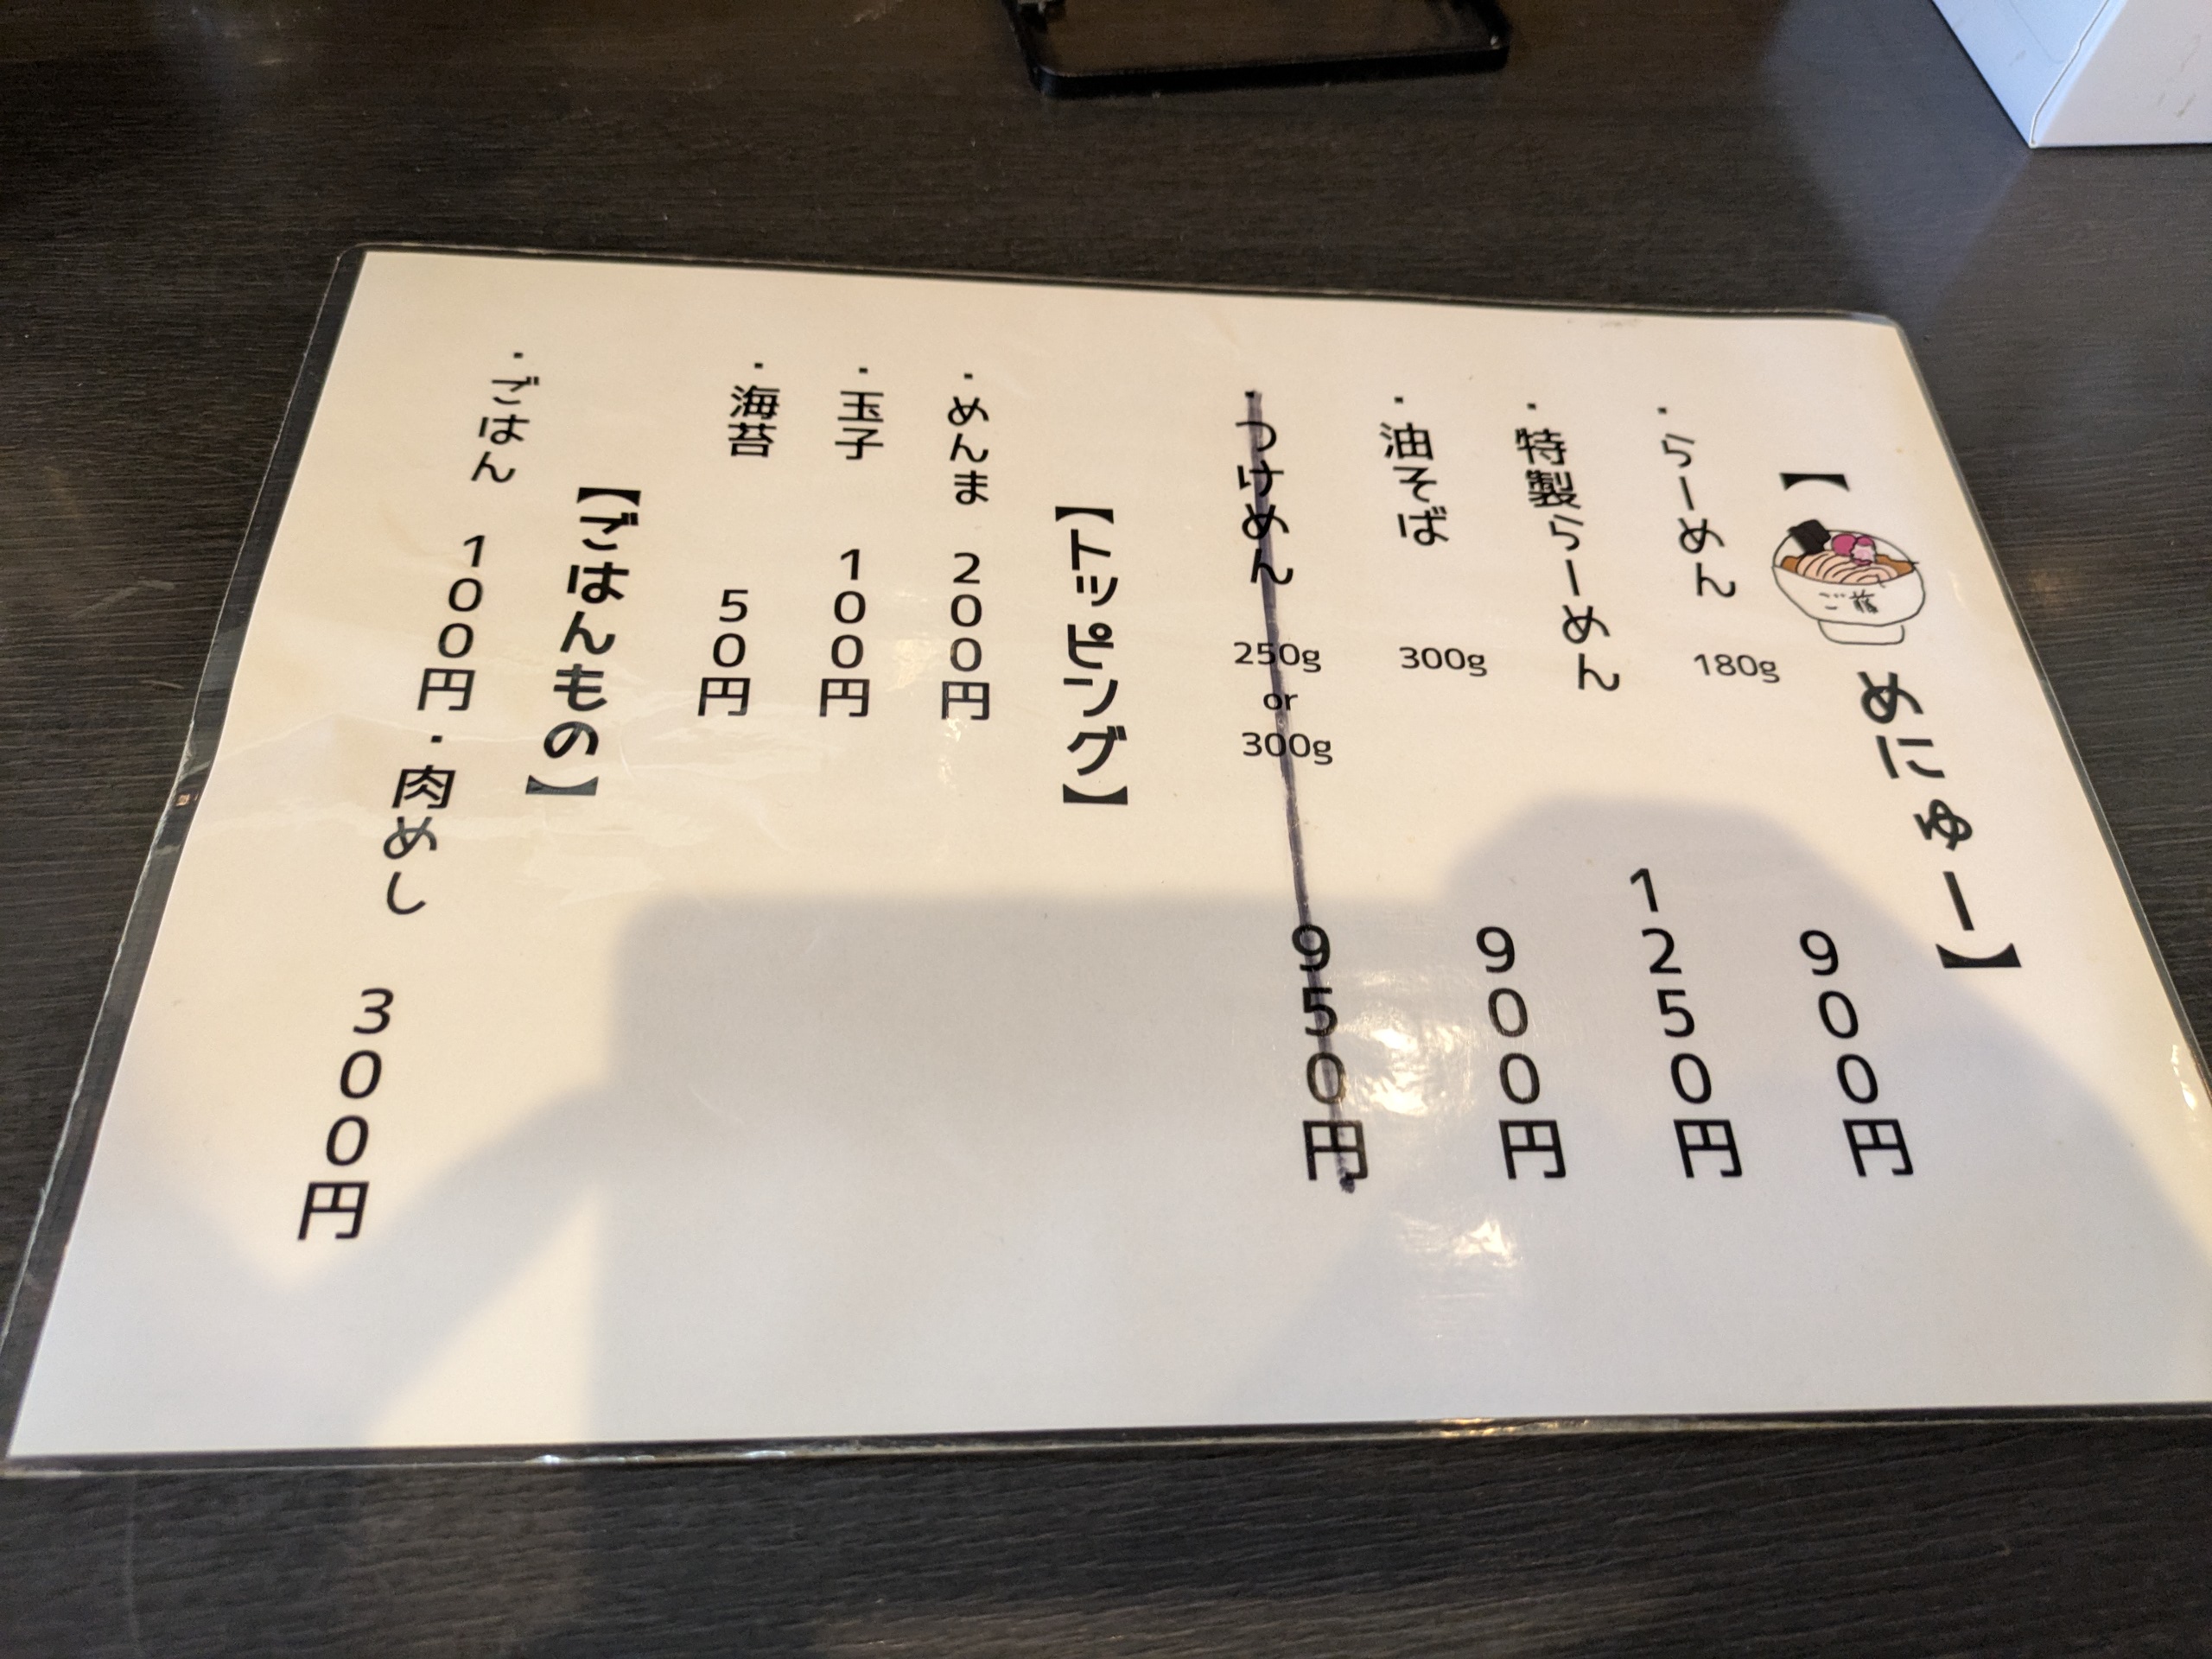 【ご藤 めにゅー】
・らーめん 180g 900円
・特製らーめん 1250円
・油そば 300g 900円
・つけめん 250g or 300g 950円
【トッピング】
・めんま 200円
・玉子 100円
・海苔 50円
【ごはんもの】
・ごはん 100円・肉めし 300円